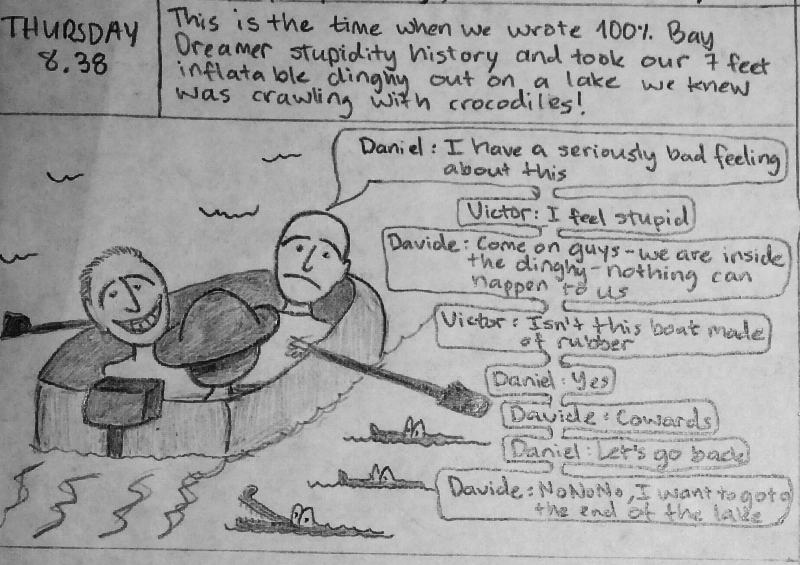 THURSDAY
8.38
This is the time when we wrote 100% Bay
Dreamer stupidity history and took our 7 feet
inflatable dinghy out on a lake we knew
was crawling with crocodiles!
Daniel: I have a seriously bad feeling
about this
Victor: I feel stupid
Davide: Come on guys - we are inside
the dinghy - nothing can
happen to us
Victor: Isn't this boat made
of rubber
Daniel: Yes
Davide: Cowards
Daniel: Let's go back
Davide: NoNoNo, I want to go to
the end of the lake